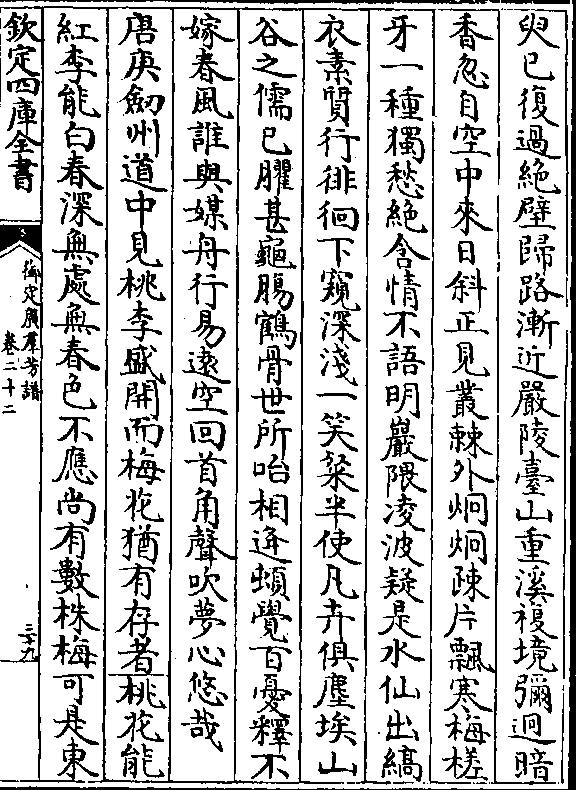 臾已復過絶壁歸路漸近嚴陵臺山重溪複境彌迥暗
香忽自空中來日斜正見叢棘外炯炯疎片飄寒梅槎
牙一種獨愁絶含情不語明巖隈凌波疑是水仙出縞
衣素質行徘徊下窺深淺一笑粲半使凡卉俱塵埃山
谷之儒已臞甚龜腸鶴骨世所咍相逢頓覺百憂釋不
嫁春風誰與媒舟行易逺空回首角聲吹夢心悠哉
唐庚劒州道中見桃李盛開而梅花猶有存者桃花能
紅李能白春深無處無春色不應尚有數株梅可是東
欽定四庫全書
御定廣羣芳譜
卷二十二
三十九